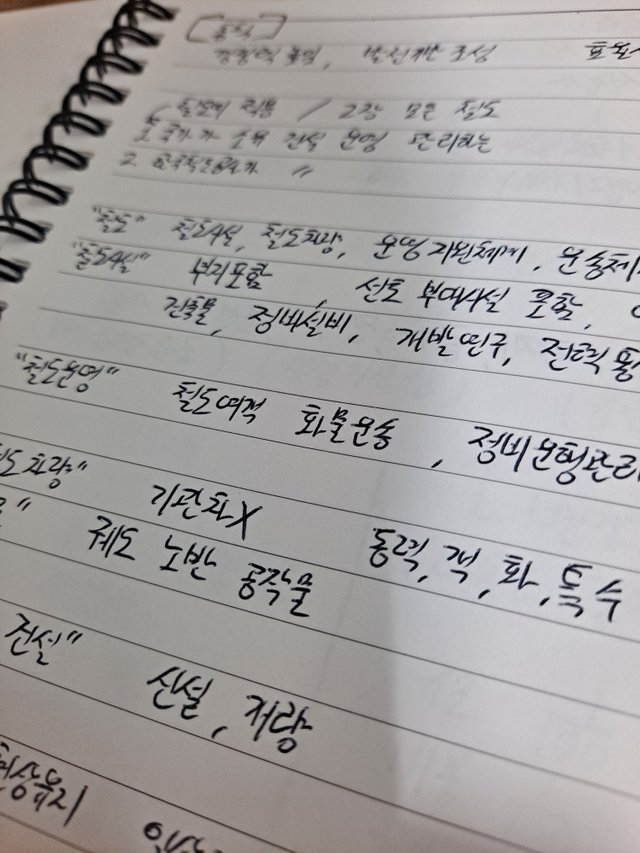 [목적]
경쟁력 높임, 발전기반 조성
철도의 적용 / 고장 모든 철도
1. 국가가 소유 건설 운영 관리하는
2. 〃
"철도" 철도시설, 철도차량, 운영지원체계, 운송체
"철도시설" 부지포함, 선로 부대시설 포함,
건축물, 정비설비, 개발연구, 전력통
"철도운영" 철도여객 화물운송, 정비운행관리
도차량" 기관차X 동력, 객, 화, 특수
" 궤도 노반 공작물
건설" 신설, 개량
현상유지